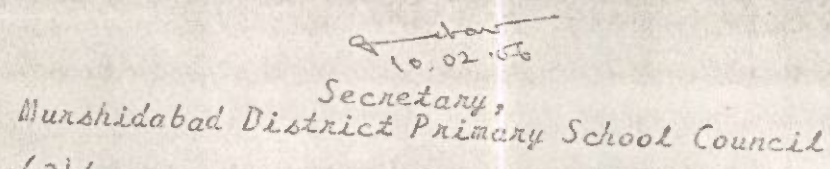 10.02.06
Secretary,
Murshidabad District Primary School Council